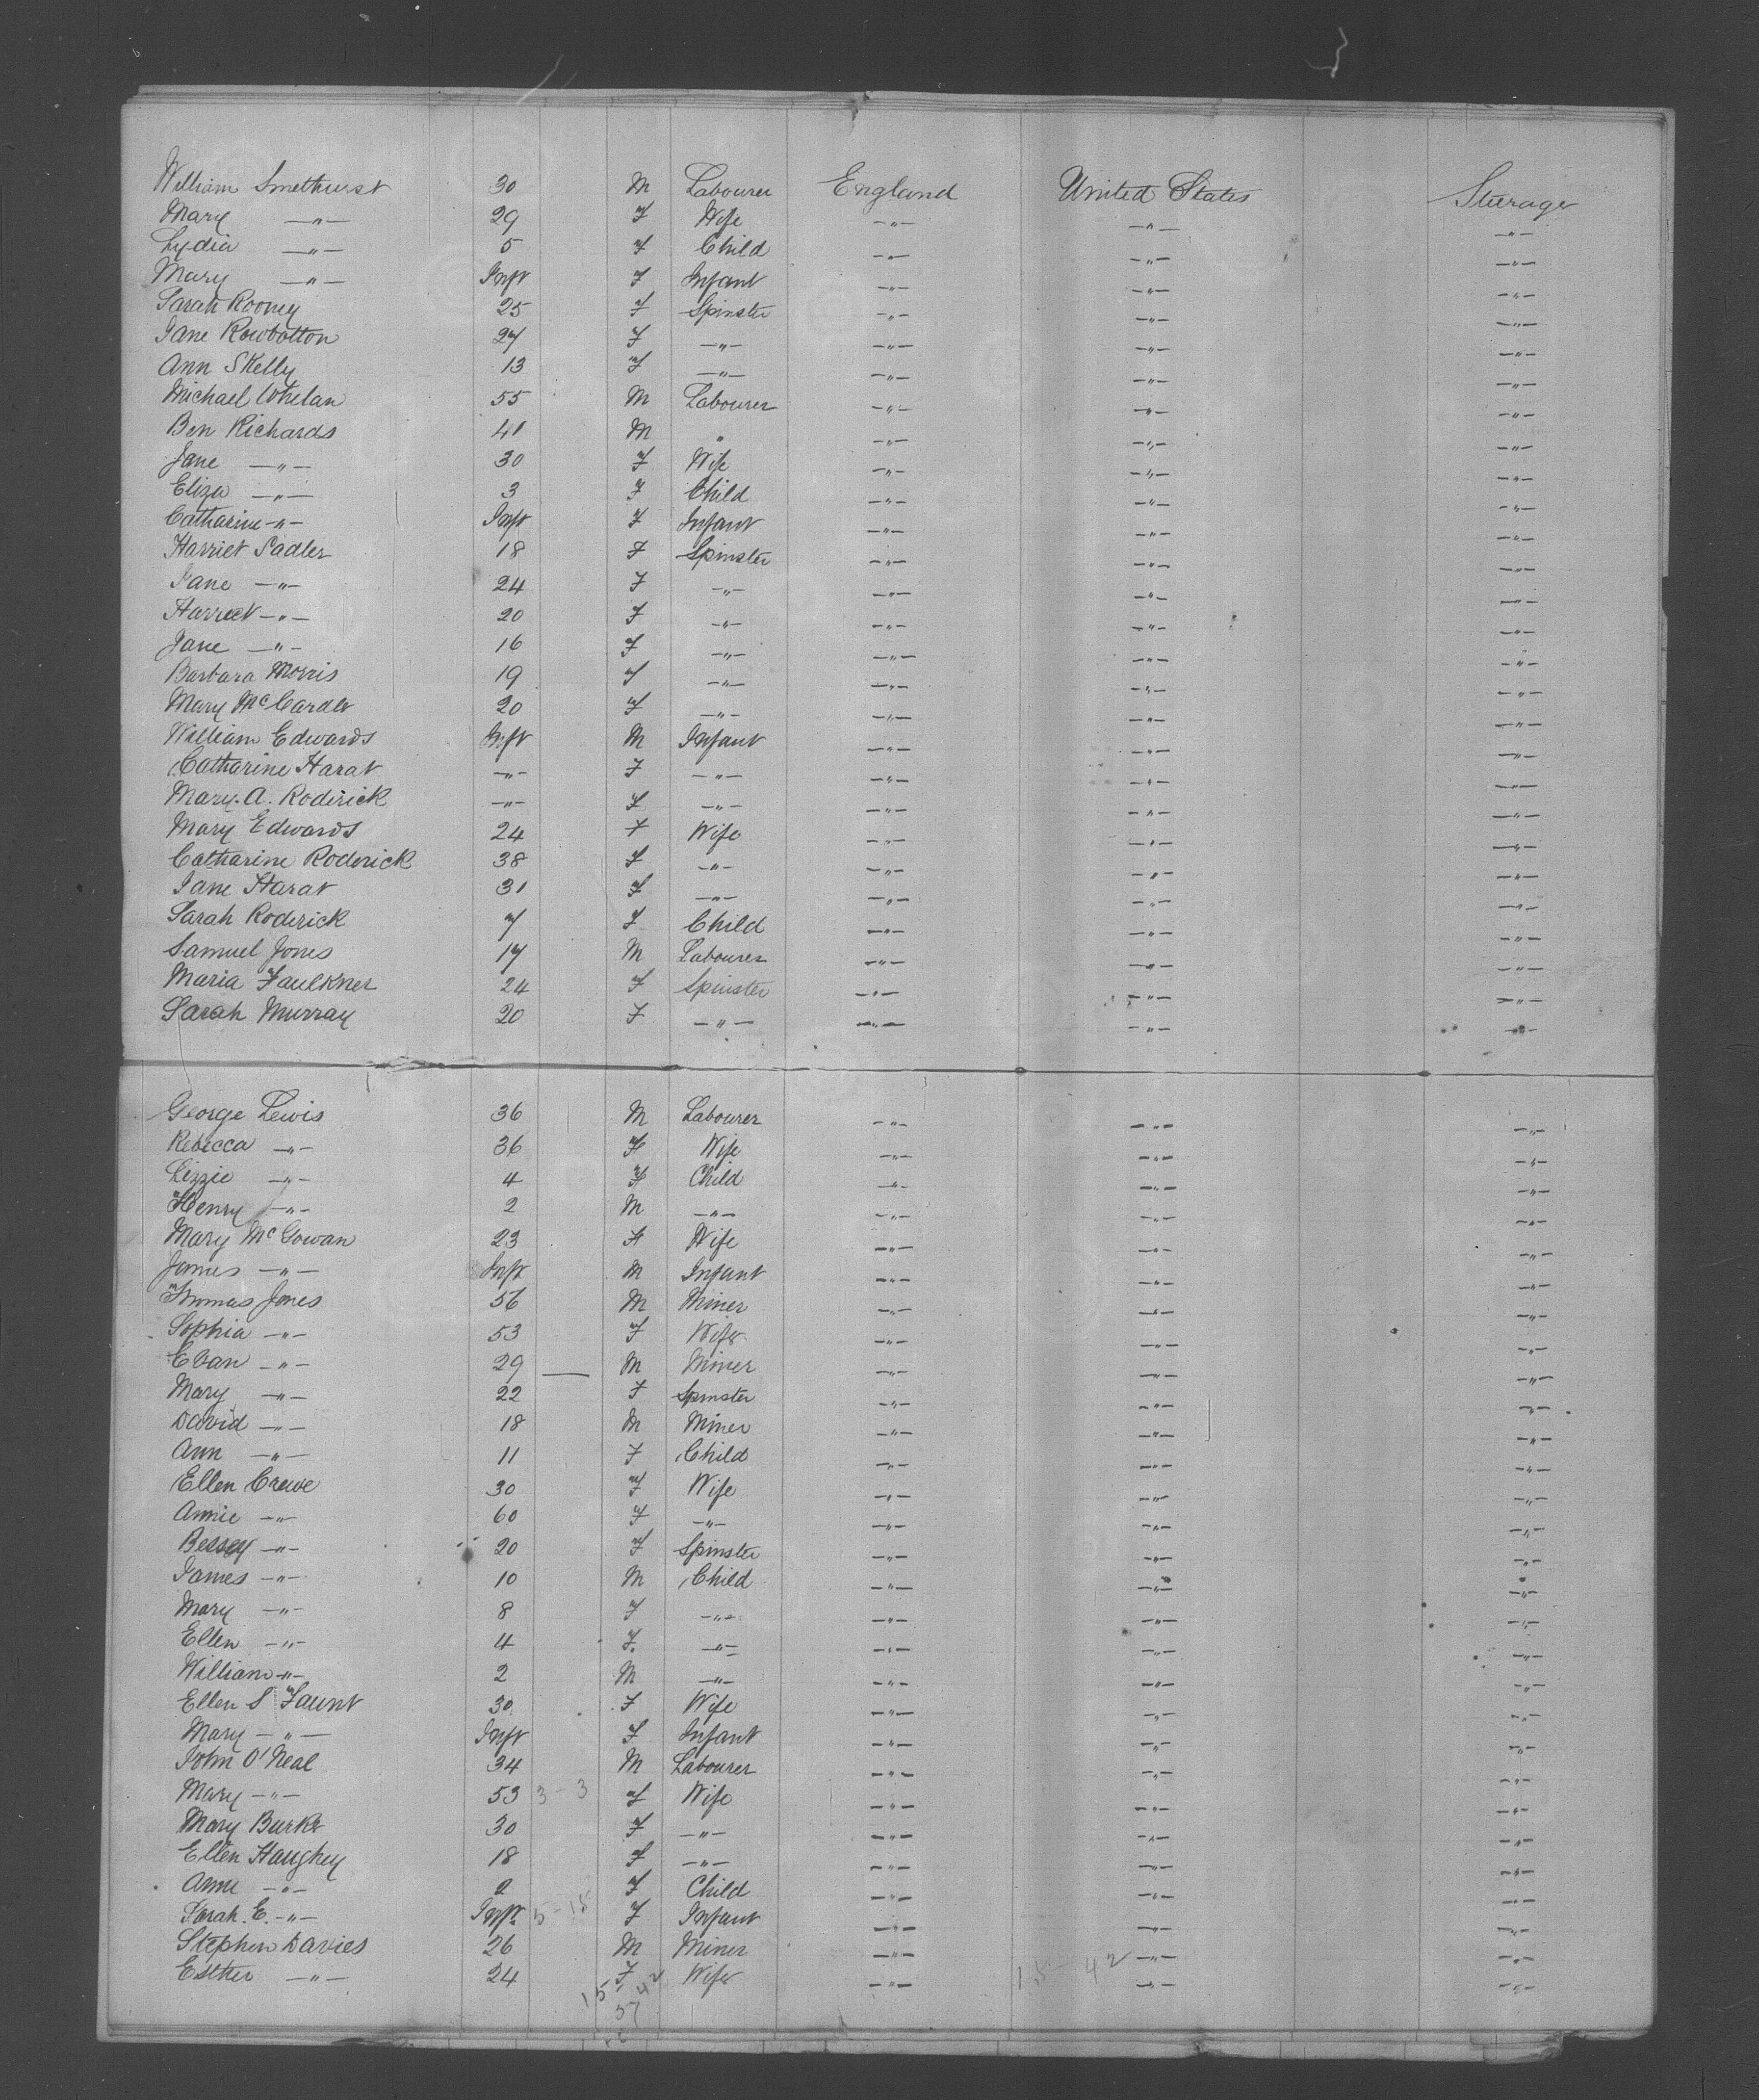 William Smethurst 30 M Labourer England United States Steerage
Mary —"— 29 F Wife —"— —"— —"—
Lydia —"— 5 F Child —"— —"— —"—
Mary —"— Inft F Infant —"— —"— —"—
Sarah Rooney 25 F Spinster —"— —"— —"—
Jane Rowbotton 27 F —"— —"— —"— —"—
Ann Skelly 13 F —"— —"— —"— —"—
Michael Whelan 55 M Labourer —"— —"— —"—
Ben Richards 41 M " —"— —"— —"—
Jane —"— 30 F Wife —"— —"— —"—
Eliza —"— 3 F Child —"— —"— —"—
Catharine —"— Inft F Infant —"— —"— —"—
Harriet Sadler 18 F Spinster —"— —"— —"—
Jane —"— 24 F —"— —"— —"— —"—
Harriet —"— 20 F —"— —"— —"— —"—
Jane —"— 16 F —"— —"— —"— —"—
Barbara Morris 19 F —"— —"— —"— —"—
Mary McCardle 20 F —"— —"— —"— —"—
William Edwards Inft M Infant —"— —"— —"—
Catharine Harat —"— F —"— —"— —"— —"—
Mary. A. Roderick —"— F —"— —"— —"— —"—
Mary Edwards 24 F Wife —"— —"— —"—
Catharine Roderick 38 F —"— —"— —"— —"—
Jane Harat 31 F —"— —"— —"— —"—
Sarah Roderick 7 F Child —"— —"— —"—
Samuel Jones 17 M Labourer —"— —"— —"—
Maria Faulkner 24 F Spinster —"— —"— —"—
Sarah Murray 20 F —"— —"— —"— —"—
George Lewis 36 M Labourer —"— —"— —"—
Rebecca —"— 36 F Wife —"— —"— —"—
Lizzie —"— 4 F Child —"— —"— —"—
Henry —"— 2 M —"— —"— —"— —"—
Mary McGowan 23 F Wife —"— —"— —"—
James —"— Inft M Infant —"— —"— —"—
Thomas Jones 56 M Miner —"— —"— —"—
Sophia —"— 53 F Wife —"— —"— —"—
Evan —"— 29 — M Miner —"— —"— —"—
Mary —"— 22 F Spinster —"— —"— —"—
David —"— 18 M Miner —"— —"— —"—
Ann —"— 11 F Child —"— —"— —"—
Ellen Crewe 30 F Wife —"— —"— —"—
Annie —"— 60 F —"— —"— —"— —"—
Bessey —"— 20 F Spinster —"— —"— —"—
James —"— 10 M Child —"— —"— —"—
Mary —"— 8 F —"— —"— —"— —"—
Ellen —"— 4 F. —"— —"— —"— —"—
William —"— 2 M —"— —"— —"— —"—
Ellen S Faunt 30 F Wife —"— —"— —"—
Mary —"— Inft F Infant —"— —"— —"—
John O'Neal 34 M Labourer —"— —"— —"—
Mary —"— 53 3-3 F Wife —"— —"— —"—
Mary Burke 30 F —"— —"— —"— —"—
Ellen Haughey 18 F —"— —"— —"— —"—
Anne —"— 2 F Child —"— —"— —"—
Sarah. E. —"— Inft 5-15 F Infant —"— —"— —"—
Stephen Davies 26 M Miner —"— —"— —"—
Esther —"— 24 F Wife —"— 15 42 —"— —"—
15 42
57